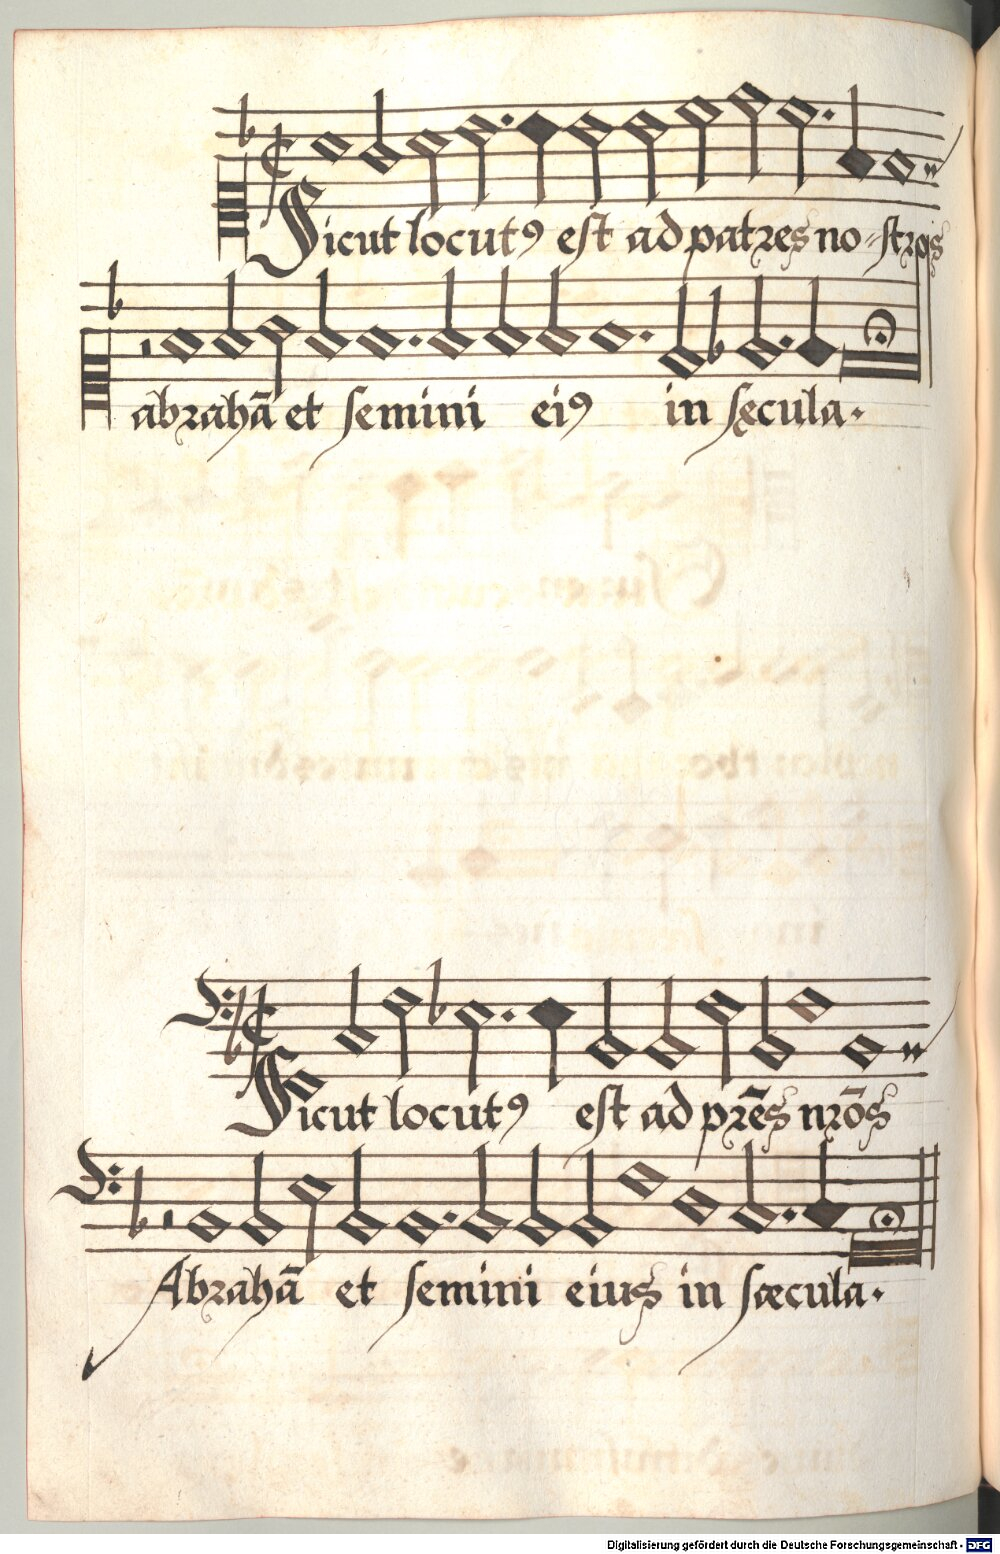 Sicut locutꝰ est ad patres no-stros
abrahā et semini eiꝰ in sęcula.
Sicut locutꝰ est ad prēs nrōs
Abrahā et semini eius in sæcula.
Digitalisierung gefördert durch die Deutsche Forschungsgemeinschaft - DFG